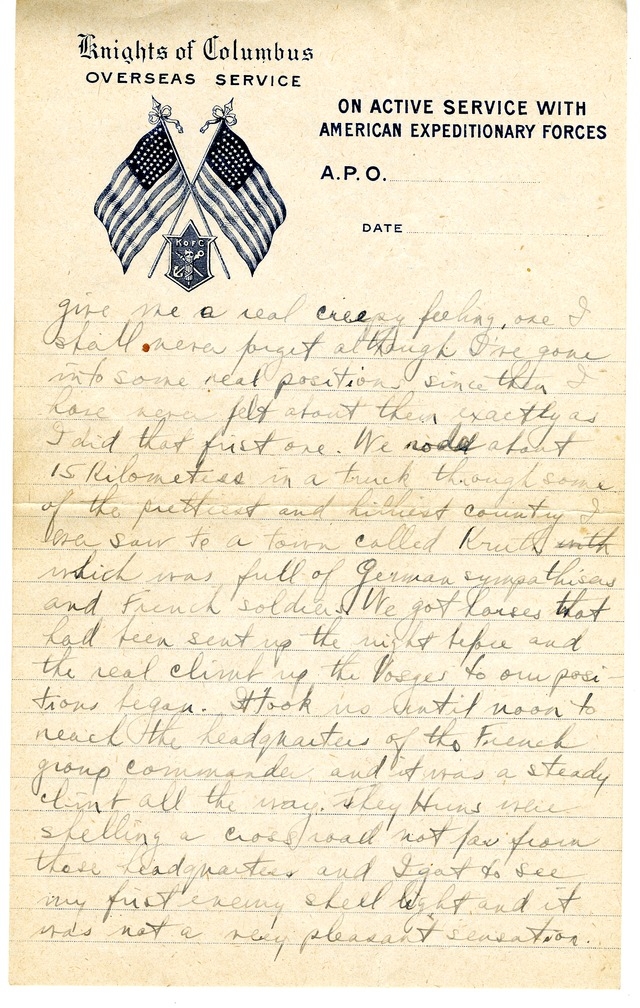 Knights of Columbus
OVERSEAS SERVICE
ON ACTIVE SERVICE WITH
AMERICAN EXPEDITIONARY FORCES
A.P.O.
DATE
K OF C
give me a real creepy feeling, one I
shall never forget although I've gone
into some real positions since then I
have never felt about them exactly as
I did that first one. We rode about
15 Kilometers in a truck through some
of the prettiest and hilliest country I
ever saw to a town called Kruth with
which was full of German sympathisers
and French soldiers. We got horses that
had been sent up the night before and
the real climb up the Vosges to our posi-
tions began. It took us until noon to
reach the headquarters of the French
group commander, and it was a steady
climb all the way. They Huns were
shelling a cross road not far from
these headquarters and I got to see
my first enemy shell light and it
was not a very pleasant sensation.